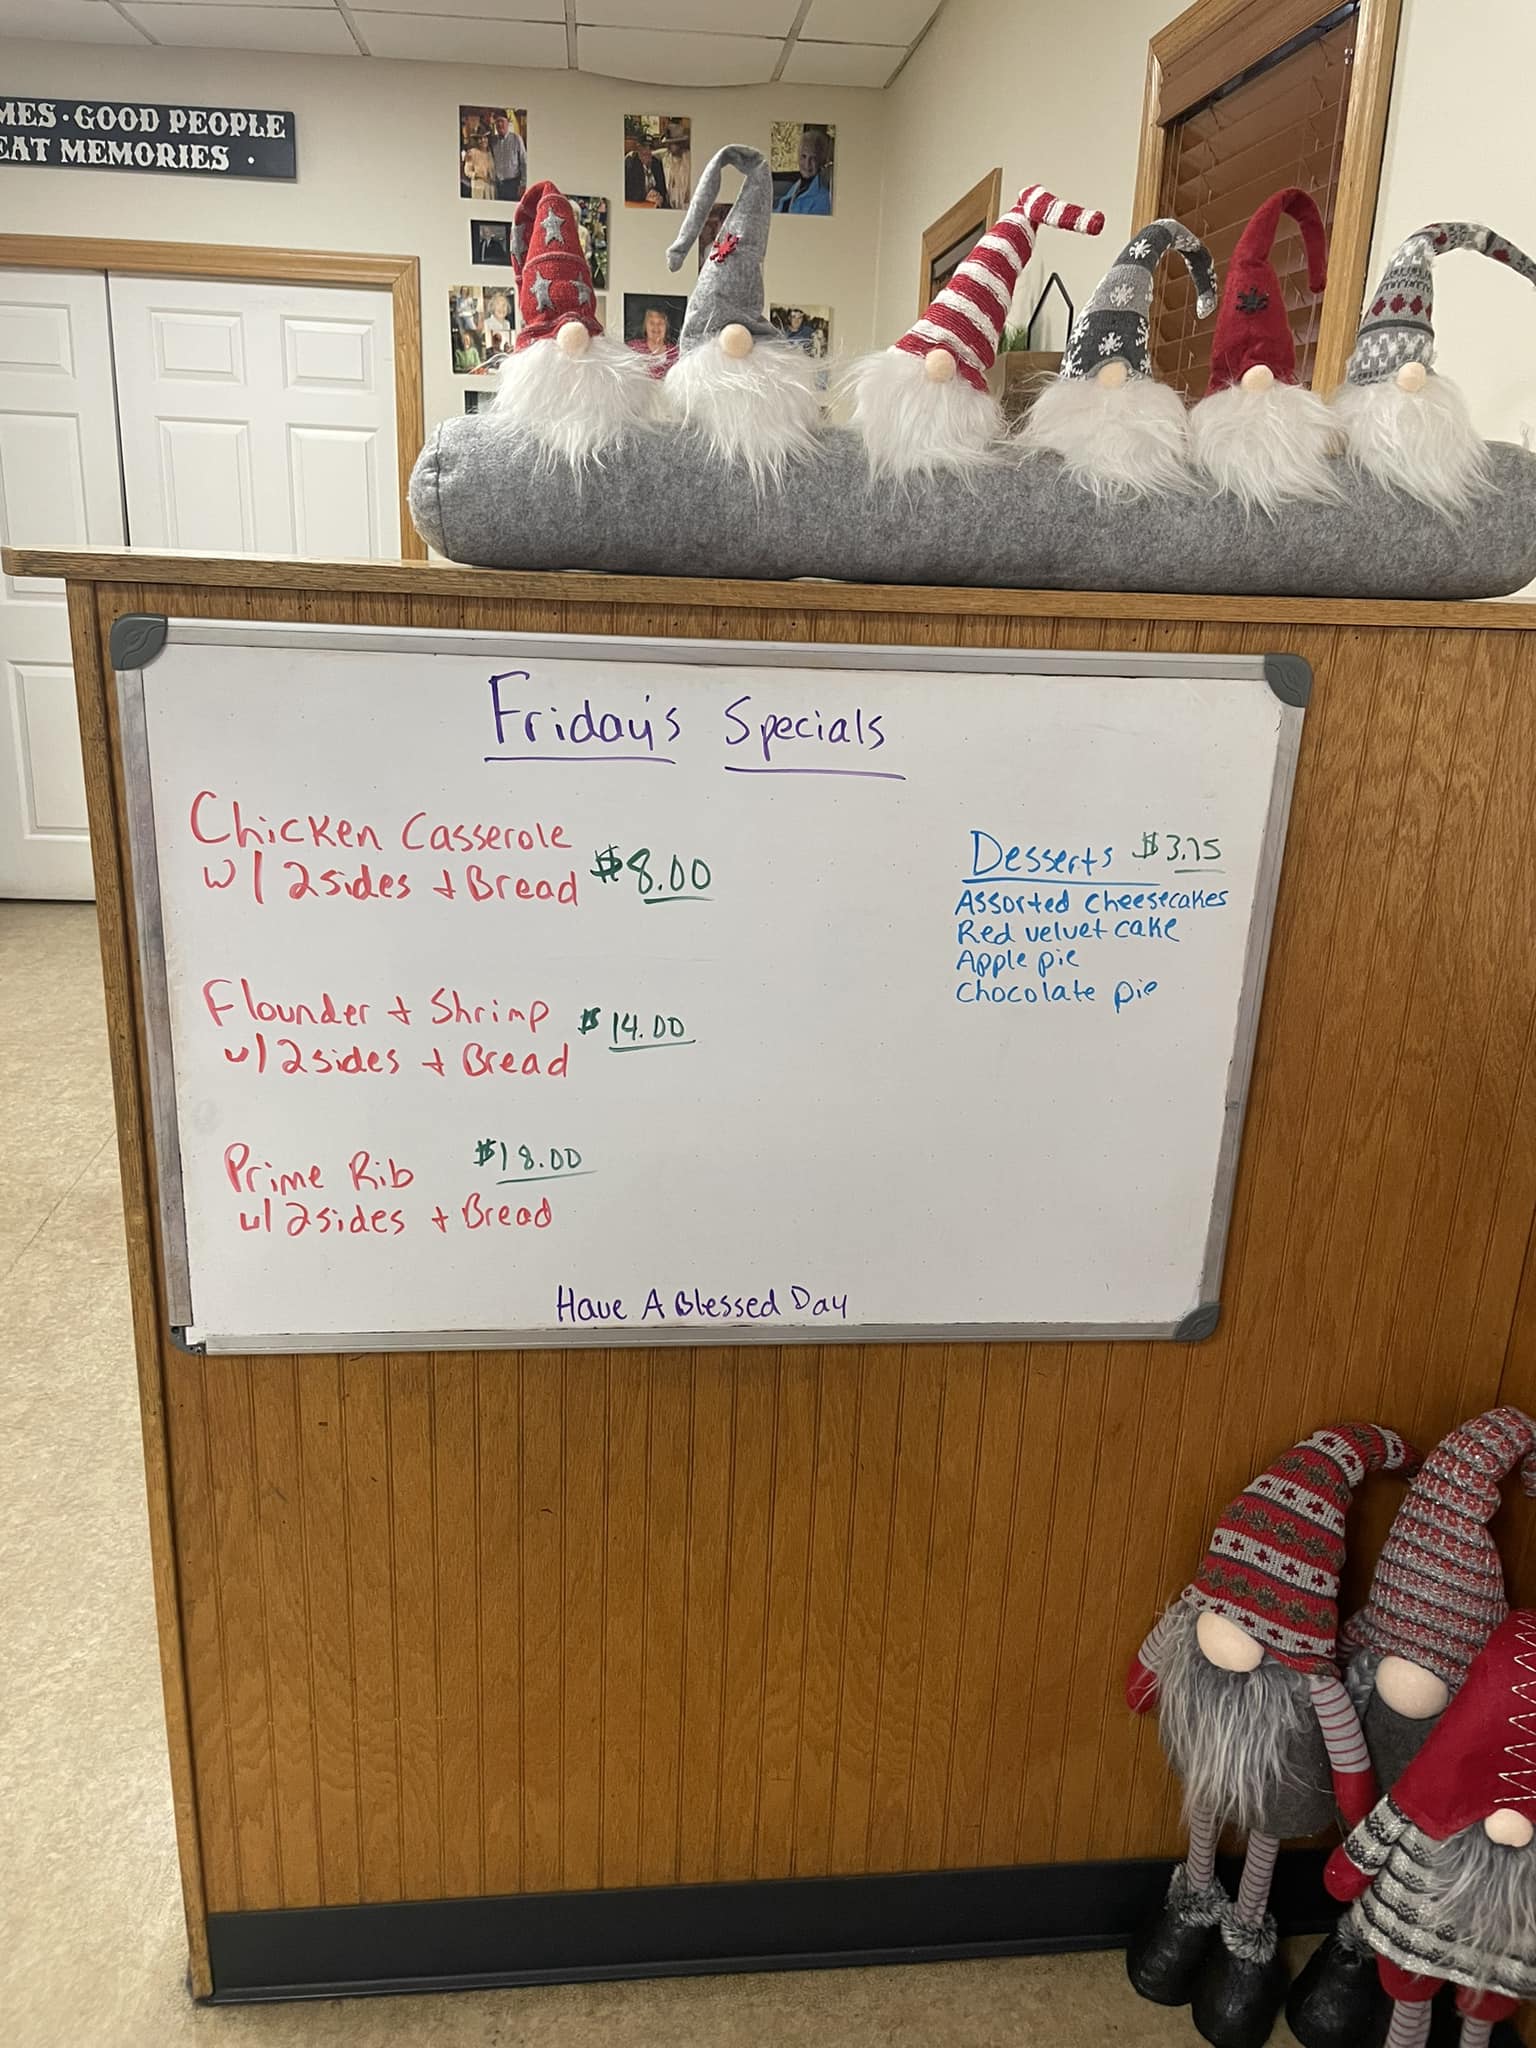 MES · GOOD PEOPLE
EAT MEMORIES ·
Friday's Specials
Chicken Casserole
w/ 2 sides + Bread $8.00
Flounder + Shrimp $14.00
w/ 2 sides + Bread
Prime Rib $18.00
w/ 2 sides + Bread
Desserts $3.75
Assorted Cheesecakes
Red velvet cake
Apple pie
Chocolate pie
Have A Blessed Day